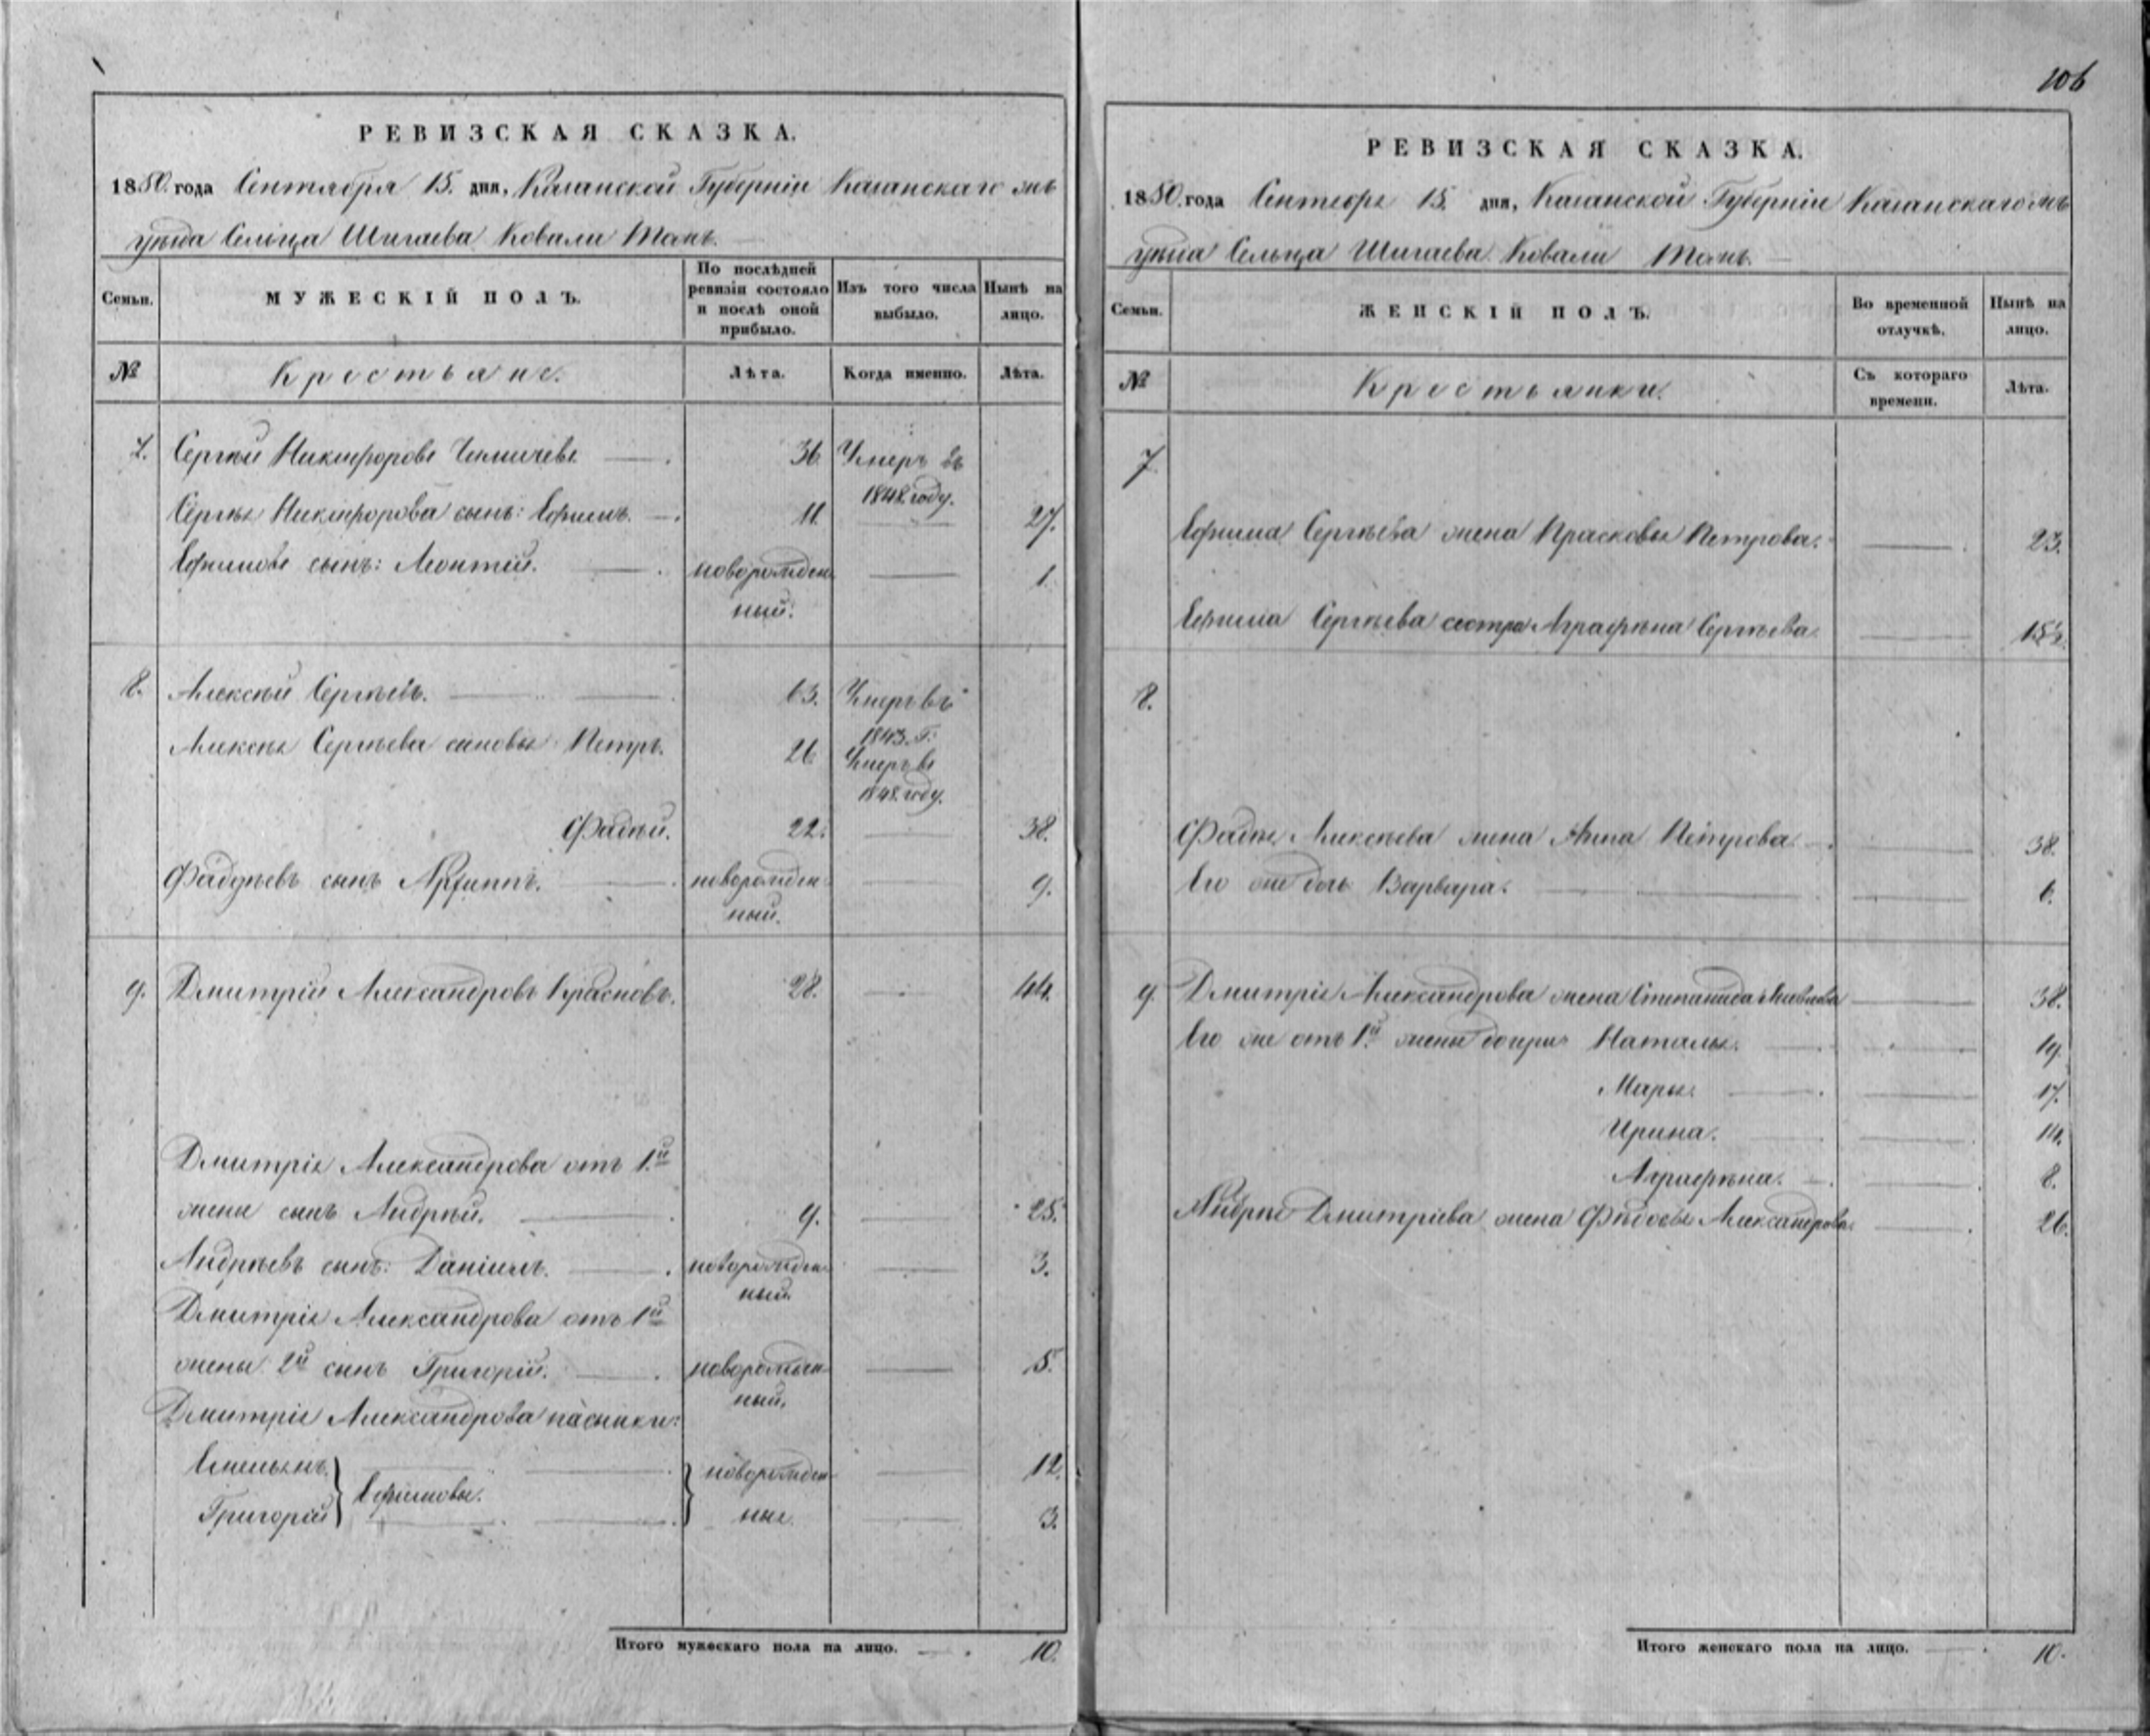 106
РЕВИЗСКАЯ СКАЗКА.
1850. года Сентября 15. дня, Казанской Губерніи Казанскаго
уѣзда Сельца Шигаева Ковали Тожъ.
Семьи. МУЖЕСКІЙ ПОЛЪ. По послѣдней ревизіи состояло и послѣ оной прибыло. Изъ того числа выбыло. Нынѣ на лицо.
№ Крестьяне. Лѣта. Когда именно. Лѣта.
7. Сергѣй Никифоровъ 36. Умеръ въ
1848. году.
Сергѣя Никифорова сынъ: Ефимъ. 11. 27.
Ефимовъ сынъ: Леонтій. новорожден 1.
ный.
8. Алексѣй Сергѣевъ. 63. Умеръ въ
1843. г.
Алексѣя Сергѣева сыновья Петръ. 26. Умеръ въ
1848. году.
Фадѣй. 22. 38.
Фадѣевъ сынъ новорожден 9.
ный.
9. Дмитрій Александровъ Красновъ. 28. 44.
Дмитрія Александрова отъ 1й
жены сынъ Андрѣй. 9. 25.
Андрѣевъ сынъ: Даніилъ. новорожден 3.
ный.
Дмитрія Александрова отъ 1й
жены 2й сынъ Григорій. новорожден 5.
ный.
Дмитрія Александрова пасынки:
Емельянъ новорожден 12.
Ефимовы.
Григорій ные 3.
Итого мужескаго пола на лицо. 10.
РЕВИЗСКАЯ СКАЗКА.
1850. года Сентября 15. дня, Казанской Губерніи Казанскаго
уѣзда Сельца Шигаева Ковали Тожъ.
Семьи. ЖЕНСКІЙ ПОЛЪ. Во временной отлучкѣ. Нынѣ на лицо.
№ Крестьянки. Съ котораго времени. Лѣта.
7.
Ефима Сергѣева жена Прасковья Петрова. 23.
Ефима Сергѣева сестра Аграфѣна Сергѣева
8.
Фадѣя Алексѣева жена Анна Петрова. 38.
Его же дочь Варвара. 6.
9. Дмитрія Александрова жена Степанида 38.
Его же отъ 1й жены дочери Наталья. 19.
Марья. 17.
Ирина. 14.
Аграфѣна. 8.
Андрѣя Дмитріева жена Федосья Александрова 26.
Итого женскаго пола на лицо. 10.